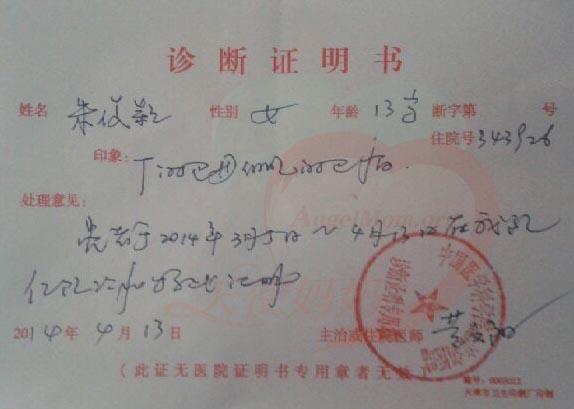 诊断证明书
姓名 朱筱颖 性别 女 年龄 13岁 断字第 号
住院号 343926
印象：
T淋巴母细胞淋巴瘤.
处理意见：
患者于2014年3月5日～4月13日在我院
住院
AngelMom.org
天使妈妈
2014年4月13日 主治或住院医师
中国医学科学院
诊断证明专用章
(此证无医院证明书专用章者无效)
编号：0003012
天津市卫生印刷厂印制